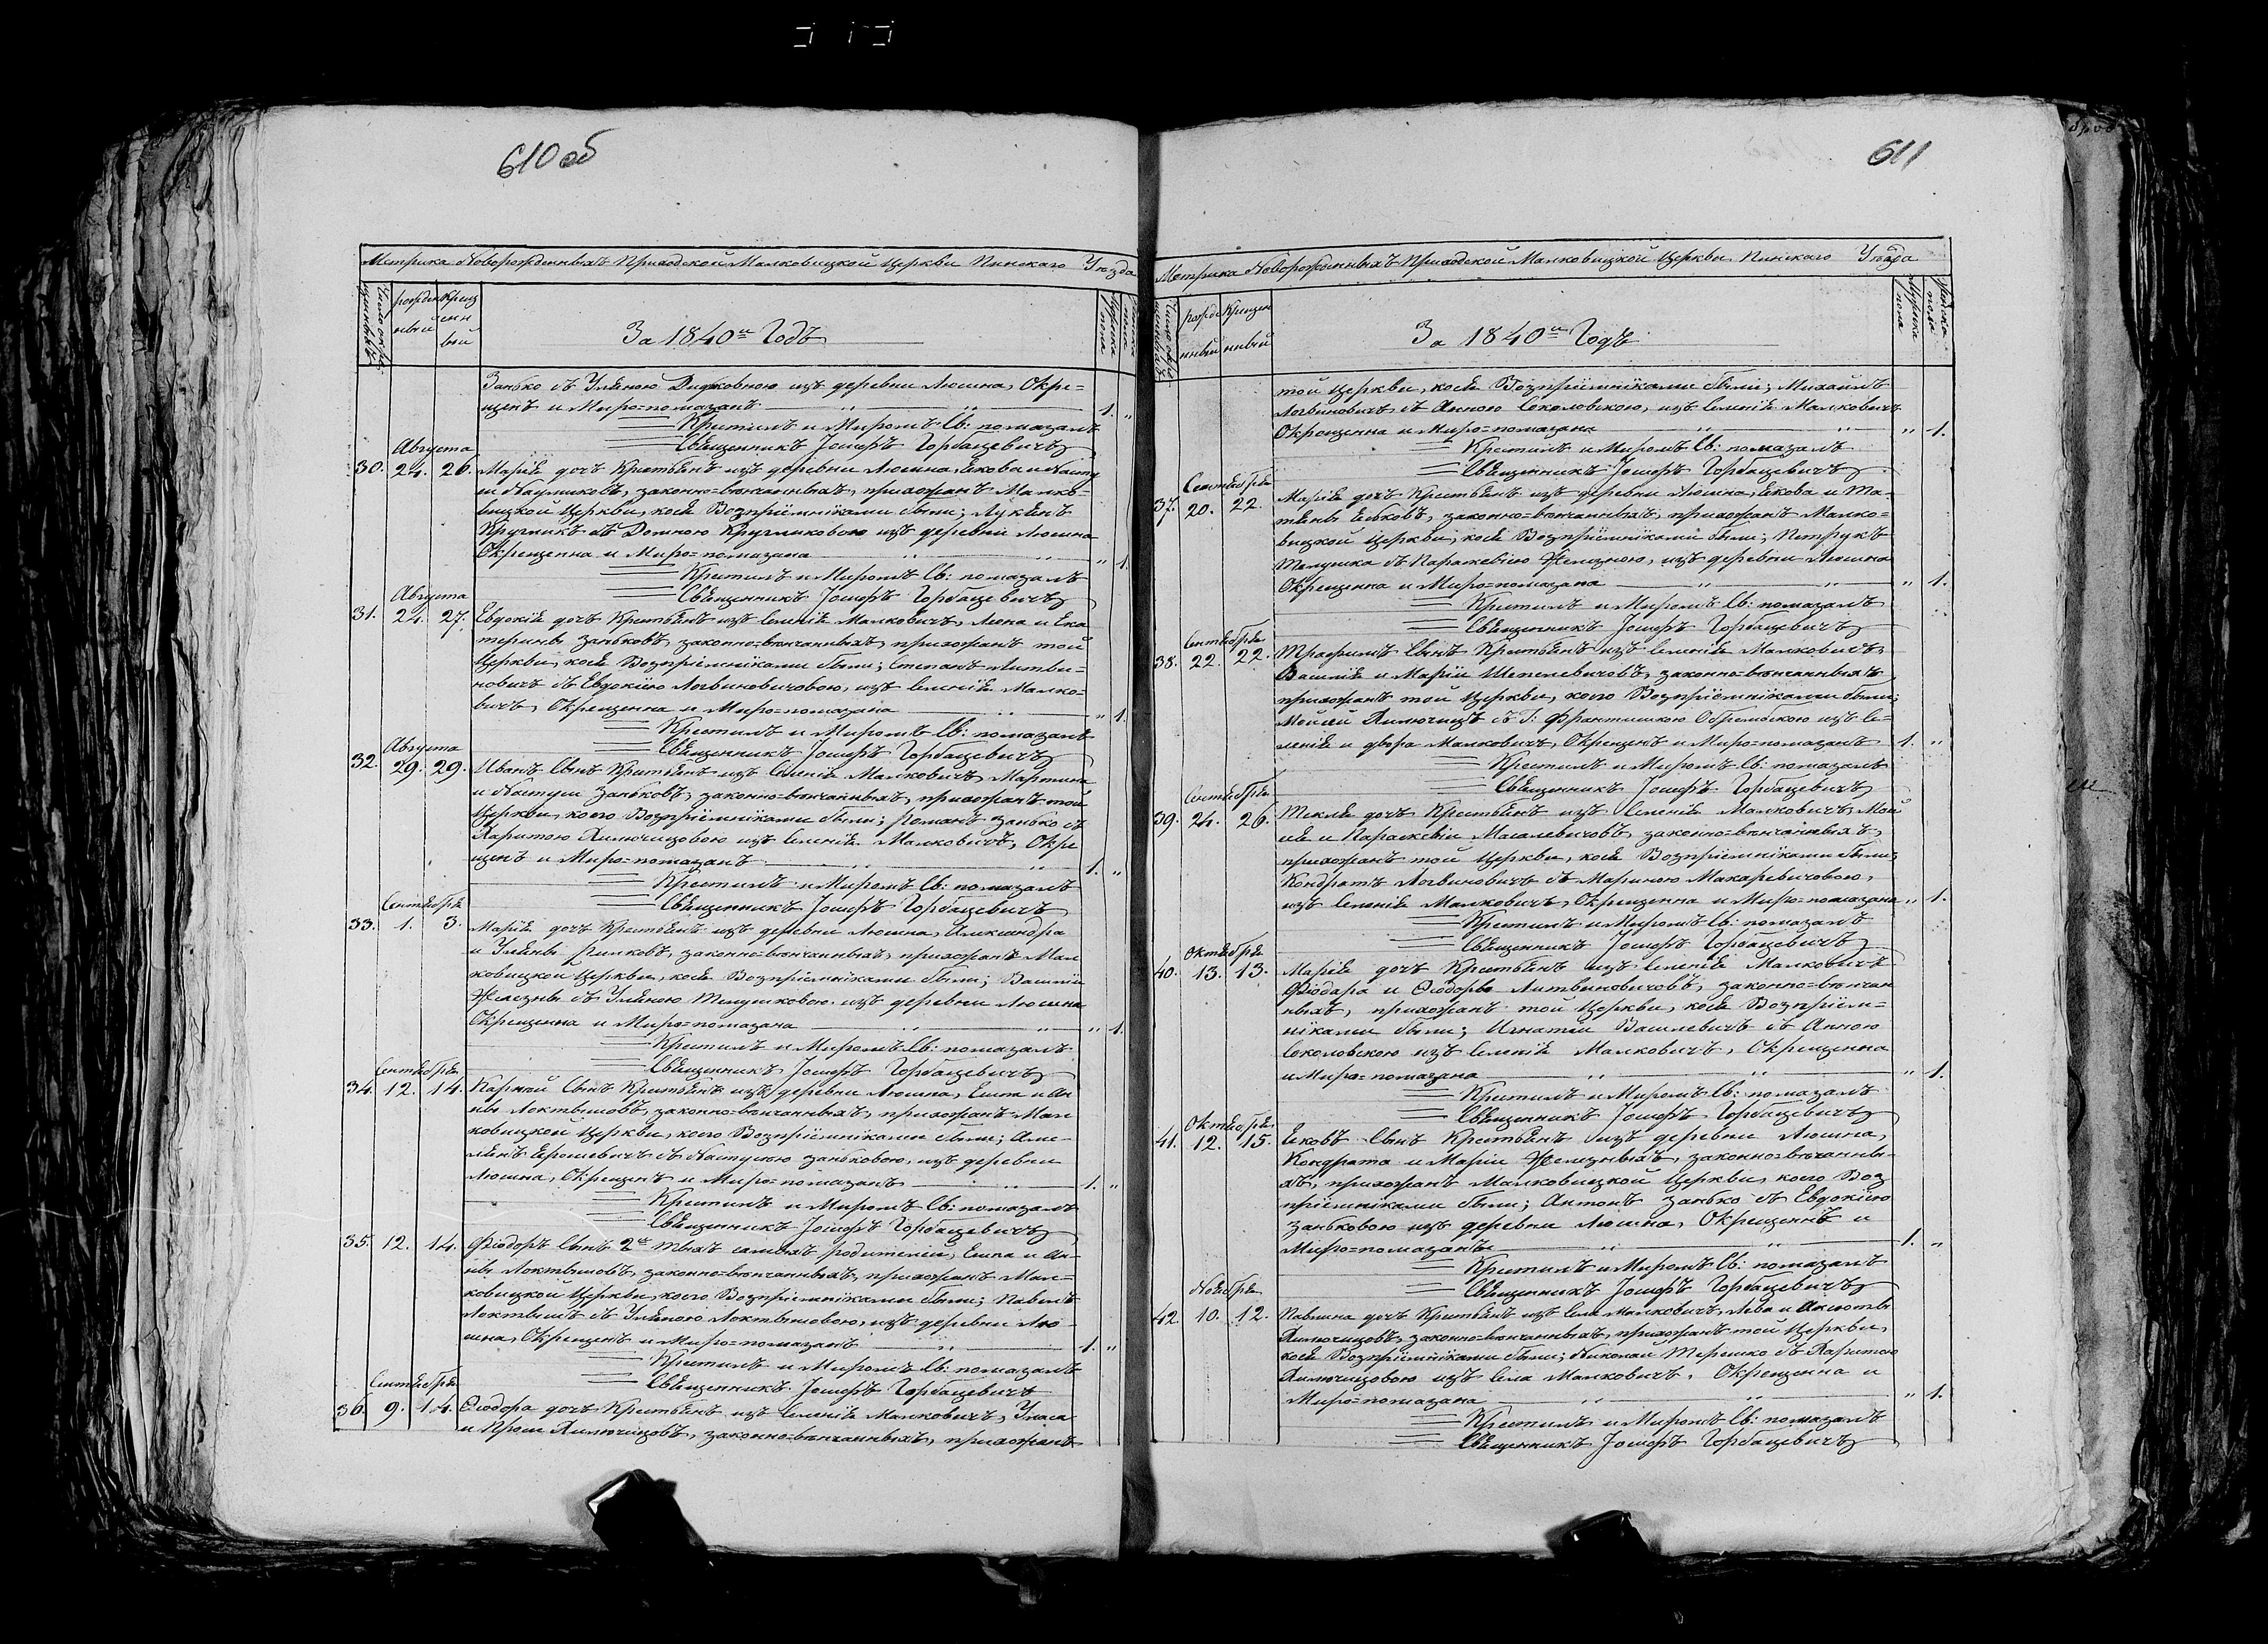 610 об
Метрика Новорожденныхъ Приходской Малковицкой Церкви Пинскаго Уѣзда
рожден креще
ный енн
ный
За 1840й Годъ
Занько съ Уляною Дидковною изъ деревни Люсина, Окре=
щенъ и Миро=помазанъ 1. „
Крестилъ и Миромъ Св: помазалъ
Священникъ Іосифъ Горбацевичъ
Августа
30. 24. 26. Марія дочъ Крестьянъ изъ деревни Люсина, Якова и Насту
ки, законно=вѣнчанныхъ, прихожанъ Малко=
вицкой Церкви, коея Воспріемниками были; Лукьянъ
Кругликъ съ Домною Кругликовою изъ деревни Люсина
Окрещенна и Миро=помазана „ 1.
Крестилъ и Миромъ Св: помазалъ
Священникъ Іосифъ Горбацевичъ
Августа
31. 24. 27. Евдокія дочъ Крестьянъ изъ Селенія Малковичъ, и Ека
терины Заньковъ, законно=вѣнчанныхъ, прихожанъ той
Церкви, коея Воспріемниками были; Степанъ Литви=
новичъ съ Евдокіею Логвиновичовою, изъ Селенія Малко=
вичъ, Окрещенна и Миро=помазана „ 1.
Крестилъ и Миромъ Св: помазалъ
Священникъ Іосифъ Горбацевичъ
Августа
32. 29. 29. Иванъ Сынъ Крестьянъ изъ Селенія Малковичъ, Мартина
и Настуси Заньковъ, законно=вѣнчанныхъ, прихожанъ той
Церкви, коего Воспріемниками были; Романъ Занько съ
Харитою Хилючицовою изъ Селенія Малковичъ, Окре
щенъ и Миро=помазанъ 1. „
Крестилъ и Миромъ Св: помазалъ
Священникъ Іосифъ Горбацевичъ
Сентября
33. 1. 3. Марія дочъ Крестьянъ изъ деревни Люсина, Александра
и Уляны, законно=вѣнчанныхъ, прихожанъ Мал
ковицкой Церкви, коея Воспріемниками были; Василій
Железны съ Уляною Телушковою изъ деревни Люсина
Окрещенна и Миро=помазана „ 1.
Крестилъ и Миромъ Св: помазалъ
Священникъ Іосифъ Горбацевичъ
Сентября
34. 12. 14. Карпъ Сынъ Крестьянъ изъ деревни Люсина, и Ан
ны Локтышовъ, законно=вѣнчанныхъ, прихожанъ Мал
ковицкой Церкви, коего Воспріемниками были; Аме=
льянъ Ярошевичъ съ Настусею Заньковою, изъ деревни
Люсина, Окрещенъ и Миро=помазанъ 1. „
Крестилъ и Миромъ Св: помазалъ
Священникъ Іосифъ Горбацевичъ
35. 12. 14. Ѳіодоръ Сынъ 2й тѣхъ самыхъ родителей, и Ан=
ны Локтышовъ, законно=вѣнчанныхъ, прихожанъ Мал=
ковицкой Церкви, коего Воспріемниками были; Павелъ
Локтышъ съ Уляною Локтышовою, изъ деревни Лю
сина, Окрещенъ и Миро=помазанъ 1. „
Крестилъ и Миромъ Св: помазалъ
Священникъ Іосифъ Горбацевичъ
Сентября
36. 9. 14. Ѳіодора дочъ Крестьянъ изъ Селенія Малковичъ, Уласа
и Хилючицовъ, законно=вѣнчанныхъ, прихожанъ
611
Метрика Новорожденныхъ Приходской Малковицкой Церкви Пинскаго Уѣзда
рожде Крещен
нный нный
За 1840й Годъ
той Церкви, коея Воспріемниками были; Михаилъ
Логвиновичъ съ Анною Соколовскою, изъ Селенія Малковичъ
Окрещенна и Миро=помазана „ 1.
Крестилъ и Миромъ Св: помазалъ
Священникъ Іосифъ Горбацевичъ
Сентября
37. 20. 22. Марія дочъ Крестьянъ изъ деревни Люсина, Якова и Та=
тьяны, законно=вѣнчанныхъ, прихожанъ Малко=
вицкой Церкви, коея Воспріемниками были; Петрукъ
Телушка съ Параскевіею Железною, изъ деревни Люсина
Окрещенна и Миро=помазана „ 1.
Крестилъ и Миромъ Св: помазалъ
Священникъ Іосифъ Горбацевичъ
Сентября
38. 22. 22. Трофимъ Сынъ Крестьянъ изъ Селенія Малковичъ,
Василія и Маріи Шепелевичовъ, законно=вѣнчанныхъ
прихожанъ той Церкви, коего Воспріемниками были;
Мойсей Хилючицъ съ Г: Франтишкою Обремbскою изъ Се=
ленія и двора Малковичъ, Окрещенъ и Миро=помазанъ 1. „
Крестилъ и Миромъ Св: помазалъ
Священникъ Іосифъ Горбацевичъ
Сентября
39. 24. 26. Текля дочъ Крестьянъ изъ Селенія Малковичъ, Мой
сея и Параскевіи Масалевичовъ, законно=вѣнчанныхъ,
прихожанъ той Церкви, коея Воспріемниками были;
Кондратъ Логвиновичъ съ Мариною Макаревичовою,
изъ Селенія Малковичъ, Окрещенна и Миро=помазана „ 1.
Крестилъ и Миромъ Св: помазалъ
Священникъ Іосифъ Горбацевичъ
Октября
40. 13. 13. Марія дочъ Крестьянъ изъ Селенія Малковичъ
Ѳіодара и Ѳіодоры Литвиновичовъ, законно=вѣнчан
ныхъ, прихожанъ той Церкви, коея Воспріем=
никами были; Игнатій Василевичъ съ Анною
Соколовскою изъ Селенія Малковичъ, Окрещенна
и Миро=помазана „ 1.
Крестилъ и Миромъ Св: помазалъ
Священникъ Іосифъ Горбацевичъ
Октября
41. 12. 15. Яковъ Сынъ Крестьянъ изъ деревни Люсина,
Кондрата и Маріи Железныхъ, законно=вѣнчанны=
хъ, прихожанъ Малковицкой Церкви, коего Вос
пріемниками были; Антонъ Занько съ Евдокіею
Заньковою изъ деревни Люсина, Окрещеннъ и
Миро=помазанъ 1. „
Крестилъ и Миромъ Св: помазалъ
Священникъ Іосифъ Горбацевичъ
Ноября
42. 10. 12. Павлина дочъ Крестьянъ изъ Села Малковичъ, Лева и Аксюты
Хилючицовъ, законно=вѣнчанныхъ, прихожанъ той Церкви,
коея Воспріемниками были; Николай Терешко съ Харитою
Хилючицовою изъ Села Малковичъ, Окрещенна и
Миро=помазана „ 1.
Крестилъ и Миромъ Св: помазалъ
Священникъ Іосифъ Горбацевичъ